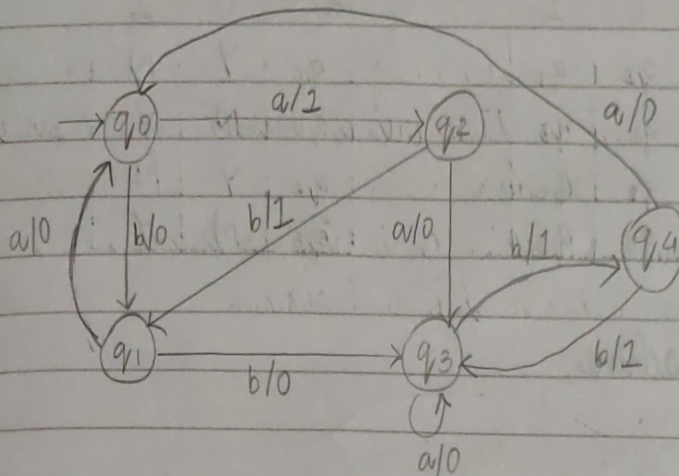 a/1
q0
q2
a/0
a/0
b/0
b/1
a/0
b/1
q4
q1
b/0
q3
b/1
a/0